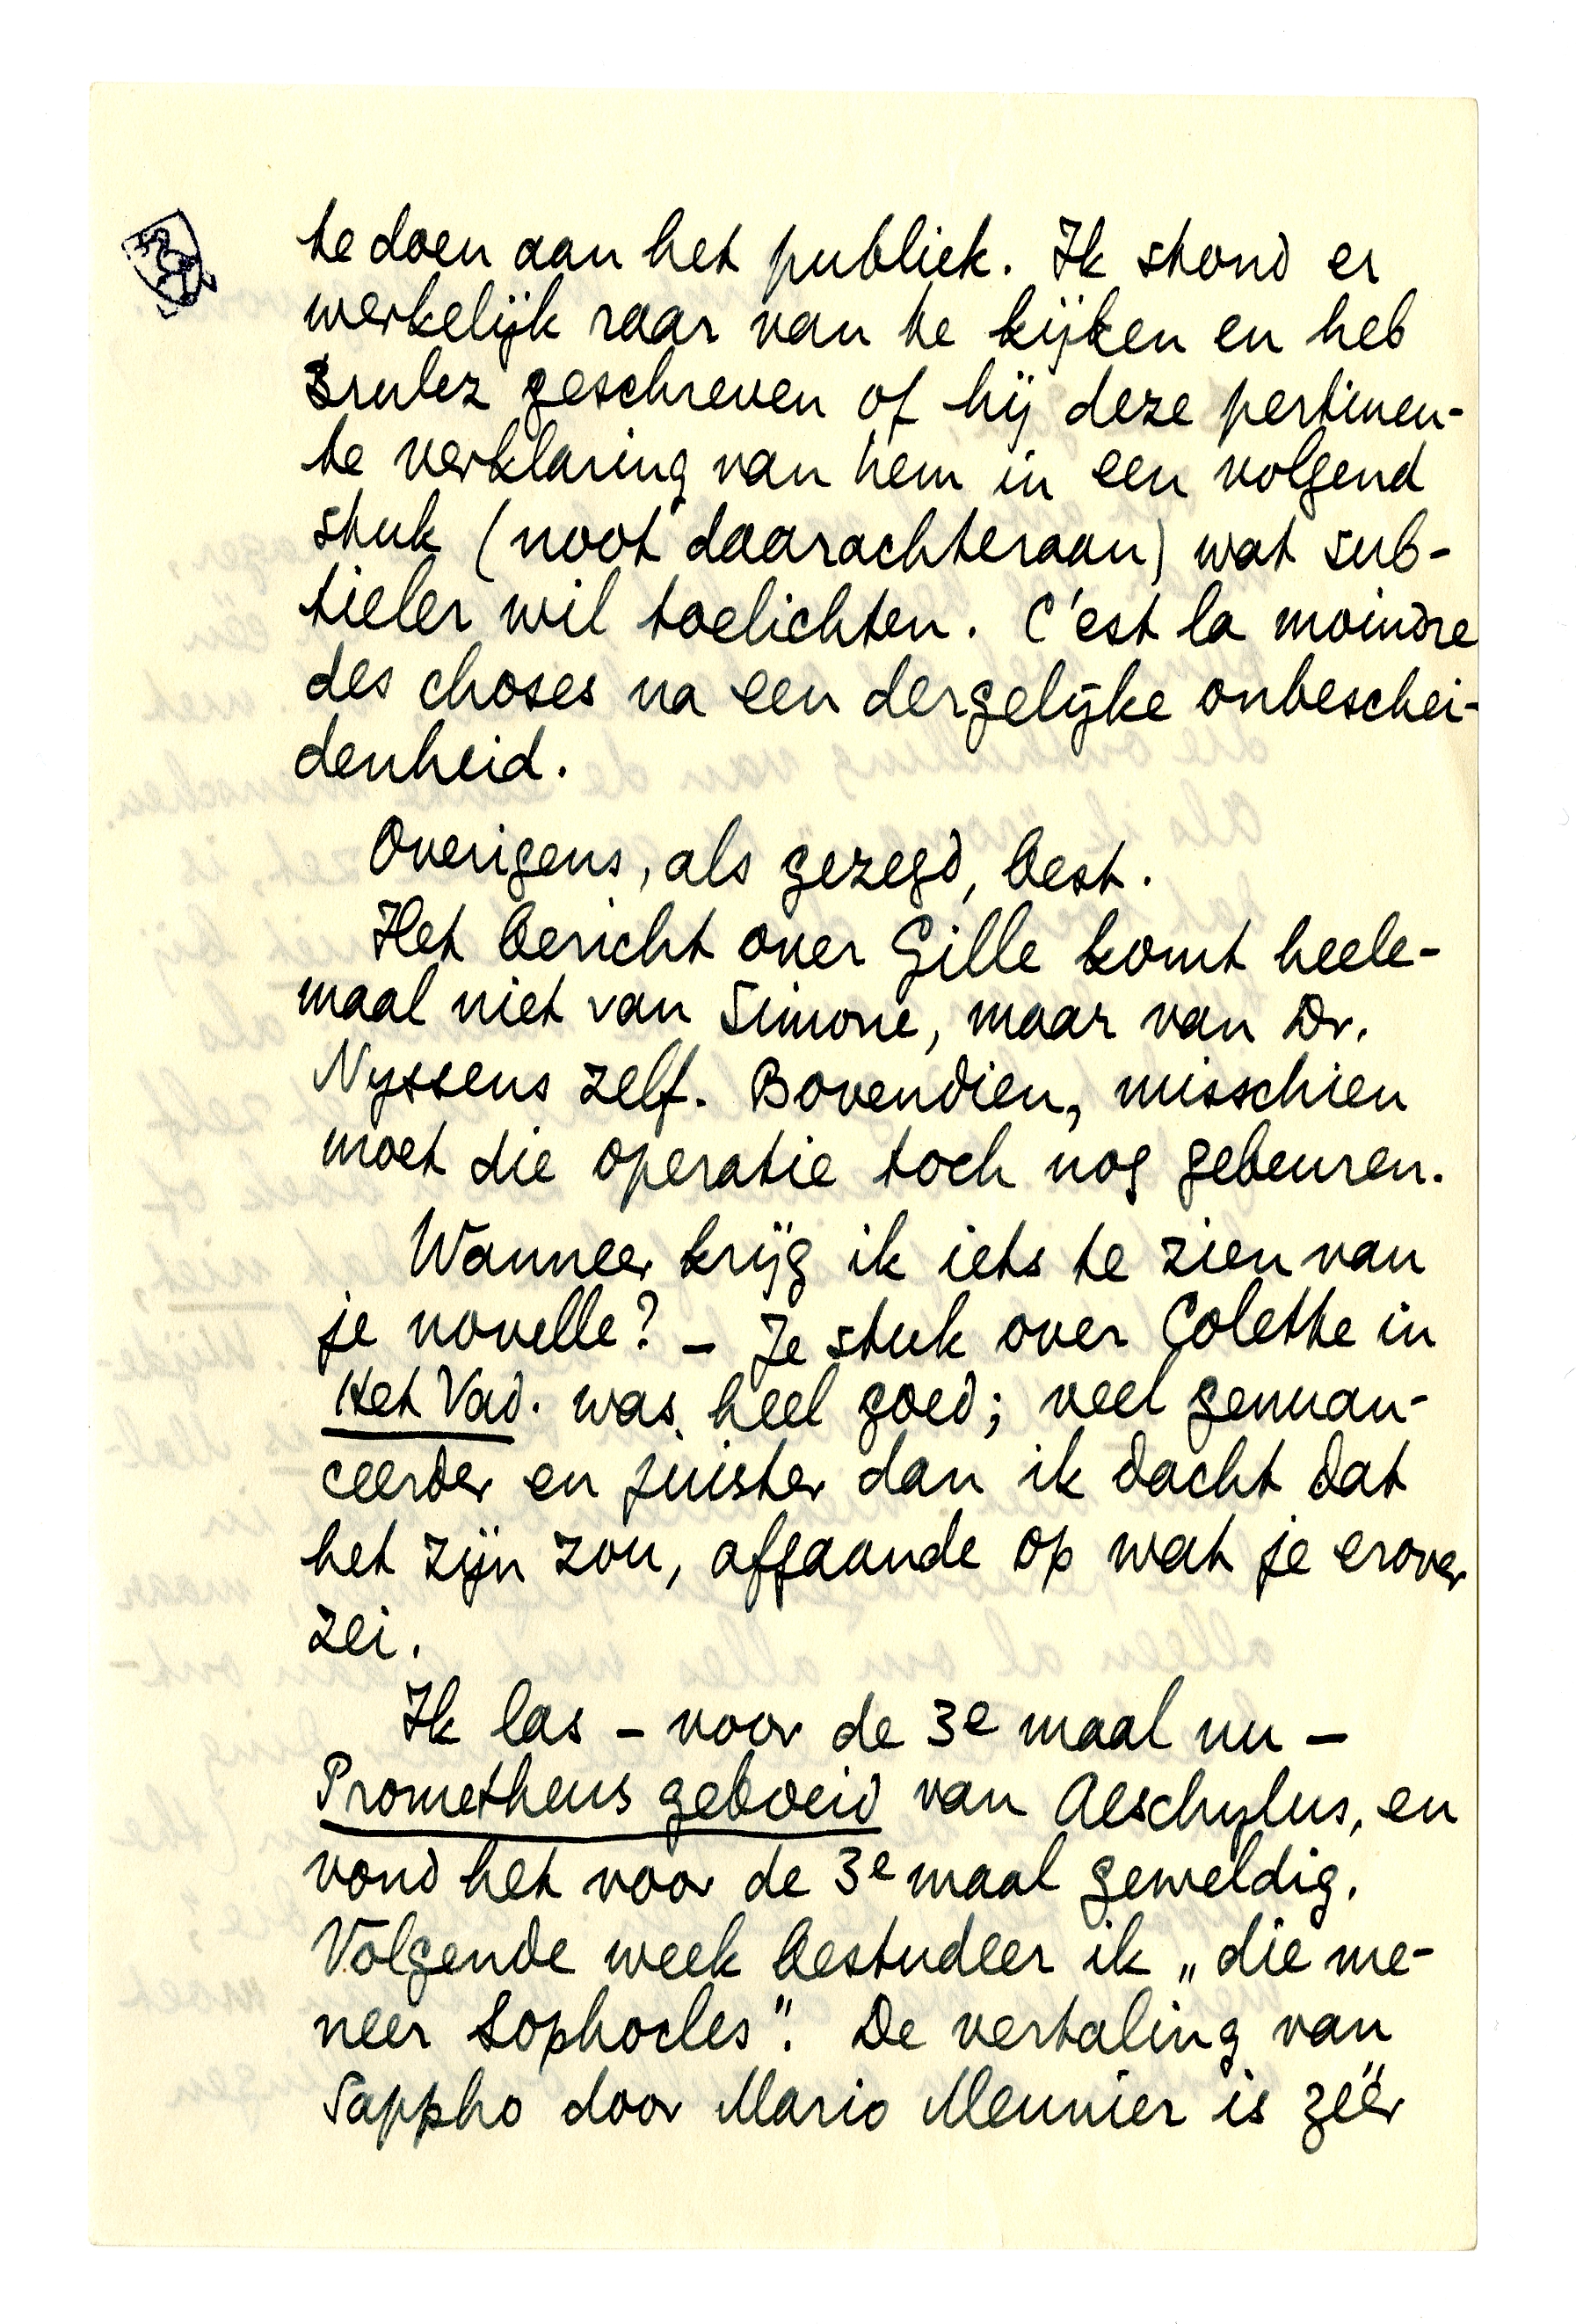 te doen aan het publiek. Ik stond er
werkelijk raar van te kijken en heb
Brulez geschreven of hij deze pertinen-
te verklaring van hem in een volgend
stuk (noot daarachteraan) wat sub-
tieler wil toelichten. C'est la moindre
des choses na een dergelijke onbeschei-
denheid.
Overigens, als gezegd, best.
Het bericht over Gille komt heele-
maal niet van Simone, maar van Dr.
Nyssens zelf. Bovendien, misschien
moet die operatie toch nog gebeuren.
Wanneer krijg ik iets te zien van
je novelle? – Je stuk over Colette in
Het Vad. was heel goed; veel genuan-
ceerder en juister dan ik dacht dat
het zijn zou, afgaande op wat je erover
zei.
Ik las – voor de 3e maal nu –
Prometheus geboeid van Aeschylus, en
vond het voor de 3e maal geweldig.
Volgende week bestudeer ik „die me-
neer Sophocles". De vertaling van
Sappho door Mario Meunier is zéér